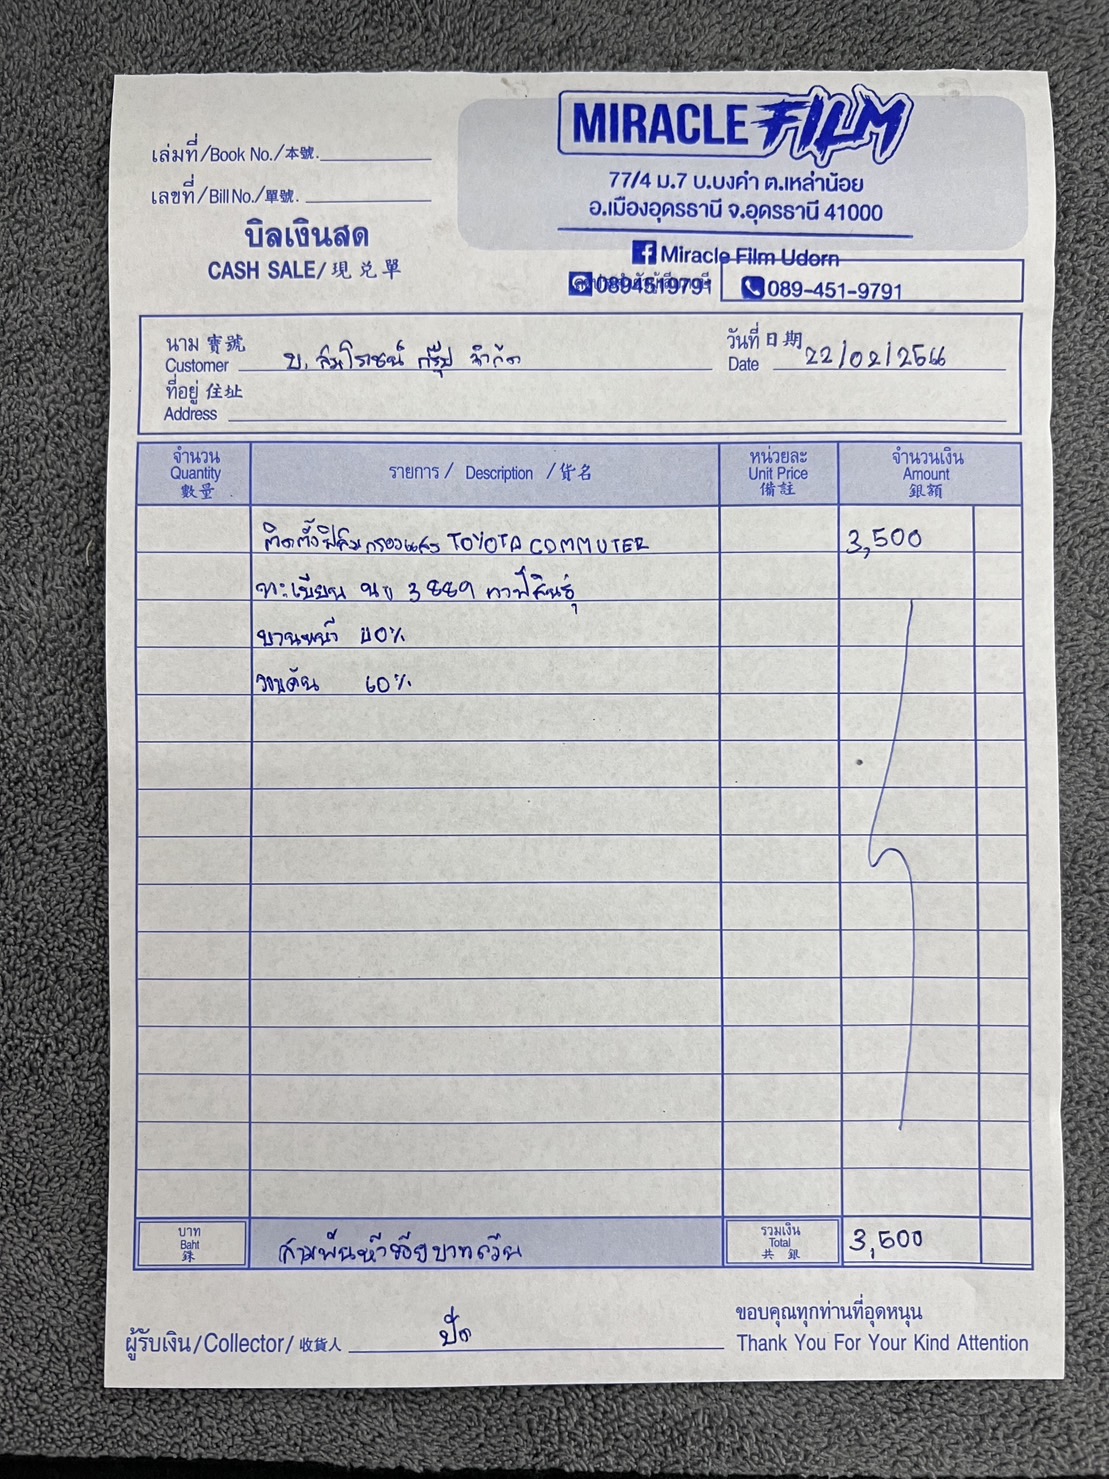 MIRACLE FILM
77/4 ม.7 บ.บงคำ ต.เหล่าน้อย
อ.เมืองอุดรธานี จ.อุดรธานี 41000
Miracle Film Udorn
0894519791 089-451-9791
เล่มที่/Book No./本號.
เลขที่/Bill No./單號.
บิลเงินสด
CASH SALE/現兑單
นาม 寶號
Customer บ. สมโรจน์ กรุ๊ป จำกัด
วันที่ 日期
Date 22/02/2566
ที่อยู่ 住址
Address
จำนวน
Quantity
數量
รายการ / Description / 貨名
หน่วยละ
Unit Price
備註
จำนวนเงิน
Amount
銀額
ติดตั้งฟิล์มกรองแสง TOYOTA COMMUTER 3,500
ทะเบียน นข 3889 กาฬสินธุ์
บานหน้า 40%
รอบคัน 60%
บาท
Baht
銖
สามพันห้าร้อยบาทถ้วน
รวมเงิน
Total
共 銀
3,500
ผู้รับเงิน/Collector/收貨人
ขอบคุณทุกท่านที่อุดหนุน
Thank You For Your Kind Attention